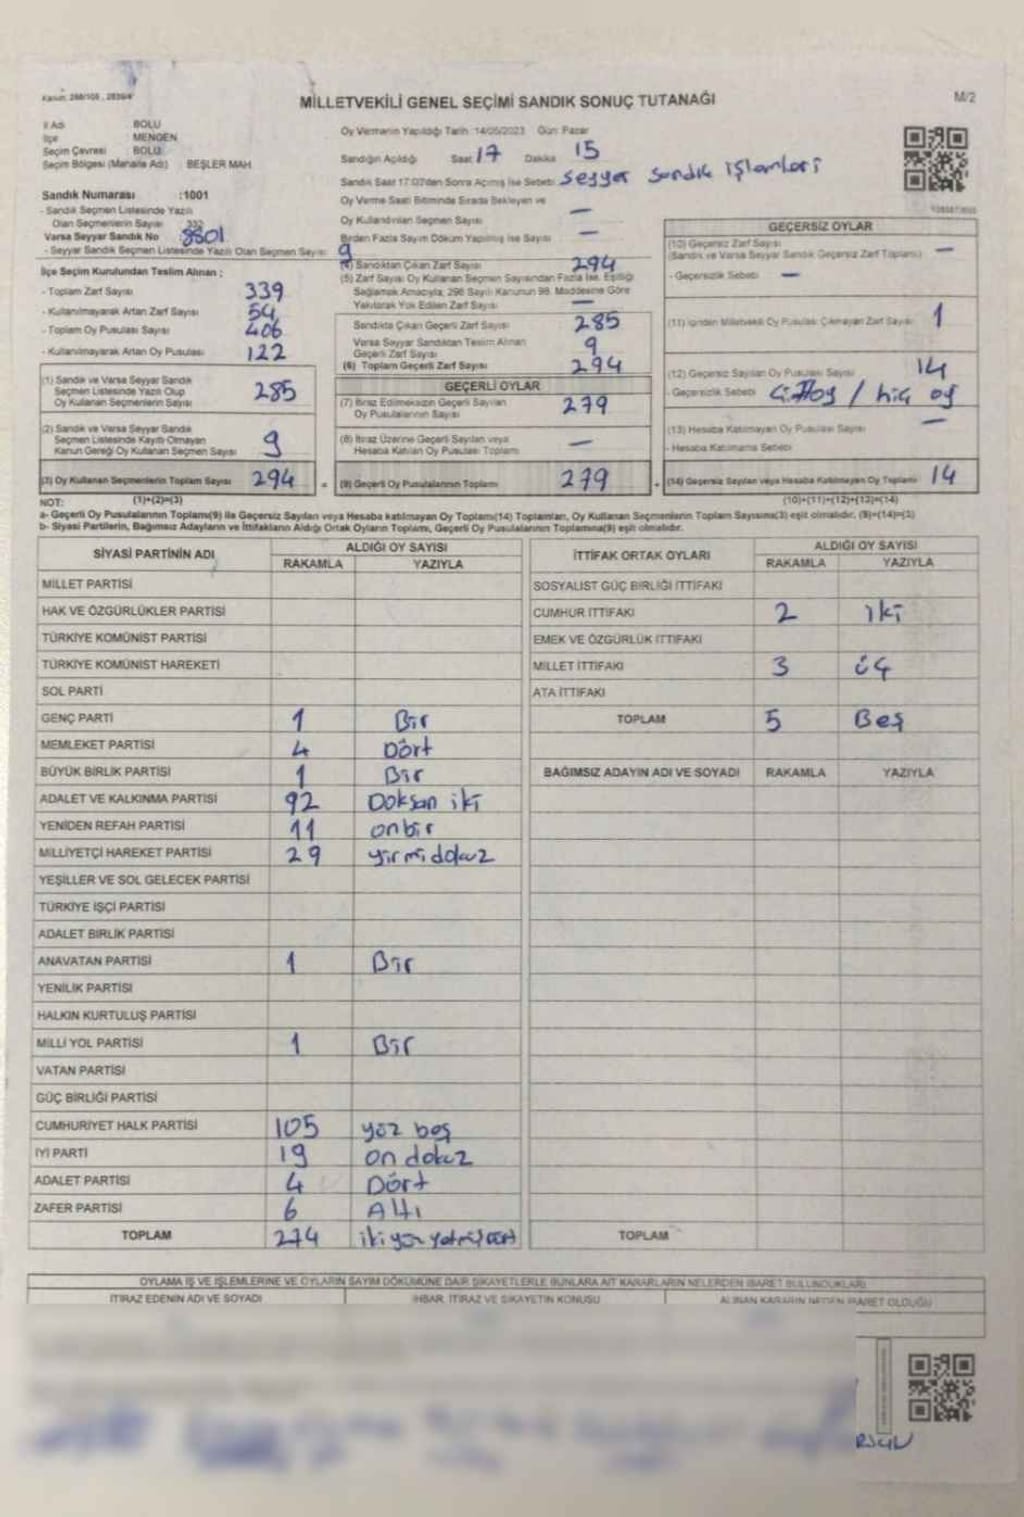 Kanun: 298/105, 2839/4
MİLLETVEKİLİ GENEL SEÇİMİ SANDIK SONUÇ TUTANAĞI
M/2
İl Adı BOLU
İlçe MENGEN
Seçim Çevresi BOLU
Seçim Bölgesi (Mahalle Adı) BEŞLER MAH.
Sandık Numarası :1001
- Sandık Seçmen Listesinde Yazılı
Olan Seçmenlerin Sayısı 332
Varsa Seyyar Sandık No 8801
- Seyyar Sandık Seçmen Listesinde Yazılı Olan Seçmen Sayısı 9
İlçe Seçim Kurulundan Teslim Alınan ;
- Toplam Zarf Sayısı 339
- Kullanılmayarak Artan Zarf Sayısı 54
- Toplam Oy Pusulası Sayısı 406
- Kullanılmayarak Artan Oy Pusulası 122
(1) Sandık ve Varsa Seyyar Sandık
Seçmen Listesinde Yazılı Olup
Oy Kullanan Seçmenlerin Sayısı 285
(2) Sandık ve Varsa Seyyar Sandık
Seçmen Listesinde Kayıtlı Olmayan
Kanun Gereği Oy Kullanan Seçmen Sayısı 9
(3) Oy Kullanan Seçmenlerin Toplam Sayısı 294
(1)+(2)=(3)
Oy Vermenin Yapıldığı Tarih :14/05/2023 Gün: Pazar
Sandığın Açıldığı Saat 17 Dakika 15
Sandık Saat 17:00'den Sonra Açılmış İse Sebebi Seyyar sandık işlemleri
Oy Verme Saati Bitiminde Sırada Bekleyen ve
Oy Kullandırılan Seçmen Sayısı —
Birden Fazla Sayım Döküm Yapılmış İse Sayısı —
(4) Sandıktan Çıkan Zarf Sayısı 294
(5) Zarf Sayısı Oy Kullanan Seçmen Sayısından Fazla İse, Eşitliği
Sağlamak Amacıyla, 298 Sayılı Kanunun 98. Maddesine Göre
Yakılarak Yok Edilen Zarf Sayısı —
Sandıkta Çıkan Geçerli Zarf Sayısı 285
Varsa Seyyar Sandıktan Teslim Alınan
Geçerli Zarf Sayısı 9
(6) Toplam Geçerli Zarf Sayısı 294
GEÇERLİ OYLAR
(7) İtiraz Edilmeksizin Geçerli Sayılan
Oy Pusulalarının Sayısı 279
(8) İtiraz Üzerine Geçerli Sayılan veya
Hesaba Katılan Oy Pusulası Toplamı —
(9) Geçerli Oy Pusulalarının Toplamı 279
GEÇERSİZ OYLAR
(10) Geçersiz Zarf Sayısı
(Sandık ve Varsa Seyyar Sandık Geçersiz Zarf Toplamı) —
- Geçersizlik Sebebi —
(11) İçinden Milletvekili Oy Pusulası Çıkmayan Zarf Sayısı 1
(12) Geçersiz Sayılan Oy Pusulası Sayısı 14
- Geçersizlik Sebebi Çift oy / hiç oy
(13) Hesaba Katılmayan Oy Pusulası Sayısı —
- Hesaba Katılmama Sebebi
(14) Geçersiz Sayılan veya Hesaba Katılmayan Oy Toplamı 14
(10)+(11)+(12)+(13)=(14)
NOT:
a- Geçerli Oy Pusulalarının Toplamı(9) ile Geçersiz Sayılan veya Hesaba katılmayan Oy Toplamı(14) Toplamları, Oy Kullanan Seçmenlerin Toplam Sayısına(3) eşit olmalıdır. (9)+(14)=(3)
b- Siyasi Partilerin, Bağımsız Adayların ve İttifakların Aldığı Ortak Oyların Toplamı, Geçerli Oy Pusulalarının Toplamına(9) eşit olmalıdır.
SİYASİ PARTİNİN ADI ALDIĞI OY SAYISI
RAKAMLA YAZIYLA
MİLLET PARTİSİ
HAK VE ÖZGÜRLÜKLER PARTİSİ
TÜRKİYE KOMÜNİST PARTİSİ
TÜRKİYE KOMÜNİST HAREKETİ
SOL PARTİ
GENÇ PARTİ 1 Bir
MEMLEKET PARTİSİ 4 Dört
BÜYÜK BİRLİK PARTİSİ 1 Bir
ADALET VE KALKINMA PARTİSİ 92 Doksan iki
YENİDEN REFAH PARTİSİ 11 onbir
MİLLİYETÇİ HAREKET PARTİSİ 29 yirmi dokuz
YEŞİLLER VE SOL GELECEK PARTİSİ
TÜRKİYE İŞÇİ PARTİSİ
ADALET BİRLİK PARTİSİ
ANAVATAN PARTİSİ 1 Bir
YENİLİK PARTİSİ
HALKIN KURTULUŞ PARTİSİ
MİLLİ YOL PARTİSİ 1 Bir
VATAN PARTİSİ
GÜÇ BİRLİĞİ PARTİSİ
CUMHURİYET HALK PARTİSİ 105 yüz beş
İYİ PARTİ 19 on dokuz
ADALET PARTİSİ 4 Dört
ZAFER PARTİSİ 6 Altı
TOPLAM 274 iki yüz yetmiş dört
İTTİFAK ORTAK OYLARI ALDIĞI OY SAYISI
RAKAMLA YAZIYLA
SOSYALİST GÜÇ BİRLİĞİ İTTİFAKI
CUMHUR İTTİFAKI 2 iki
EMEK VE ÖZGÜRLÜK İTTİFAKI
MİLLET İTTİFAKI 3 üç
ATA İTTİFAKI
TOPLAM 5 Beş
BAĞIMSIZ ADAYIN ADI VE SOYADI RAKAMLA YAZIYLA
TOPLAM
OYLAMA İŞ VE İŞLEMLERİNE VE OYLARIN SAYIM DÖKÜMÜNE DAİR ŞİKAYETLERLE BUNLARA AİT KARARLARIN NELERDEN İBARET BULUNDUKLARI
İTİRAZ EDENİN ADI VE SOYADI İHBAR, İTİRAZ VE ŞİKAYETİN KONUSU ALINAN KARARIN NEDEN İBARET OLDUĞU